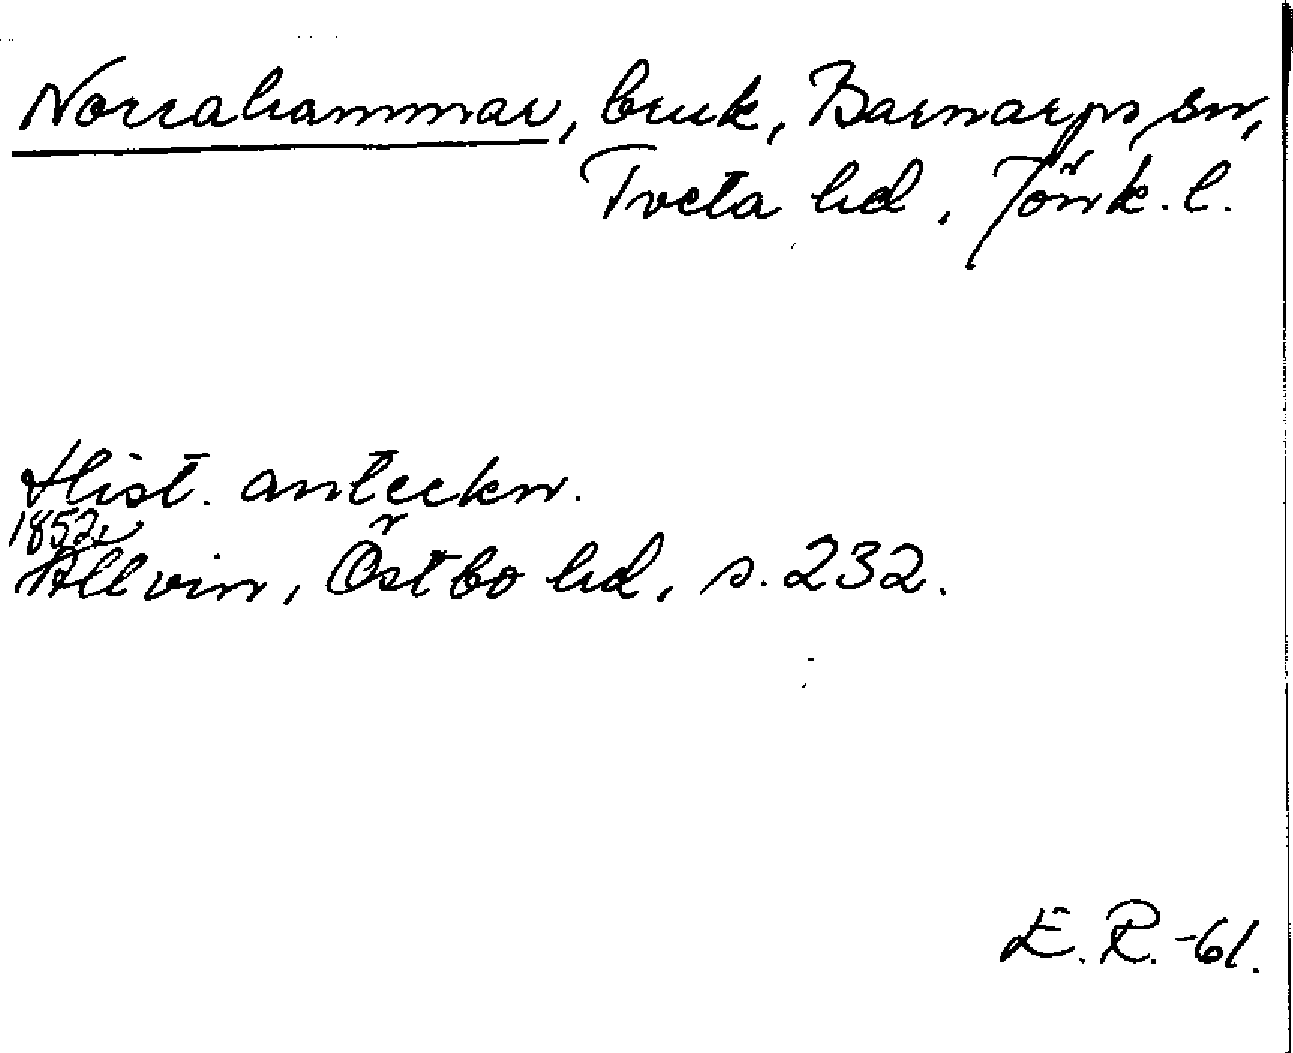 Norrahammar, bruk, Barnarps sn,
Tveta hd, Jönk. l.
Hist. anteckn.
1852.
Allvin, Östbo hd, s. 232.
E. R. -61.